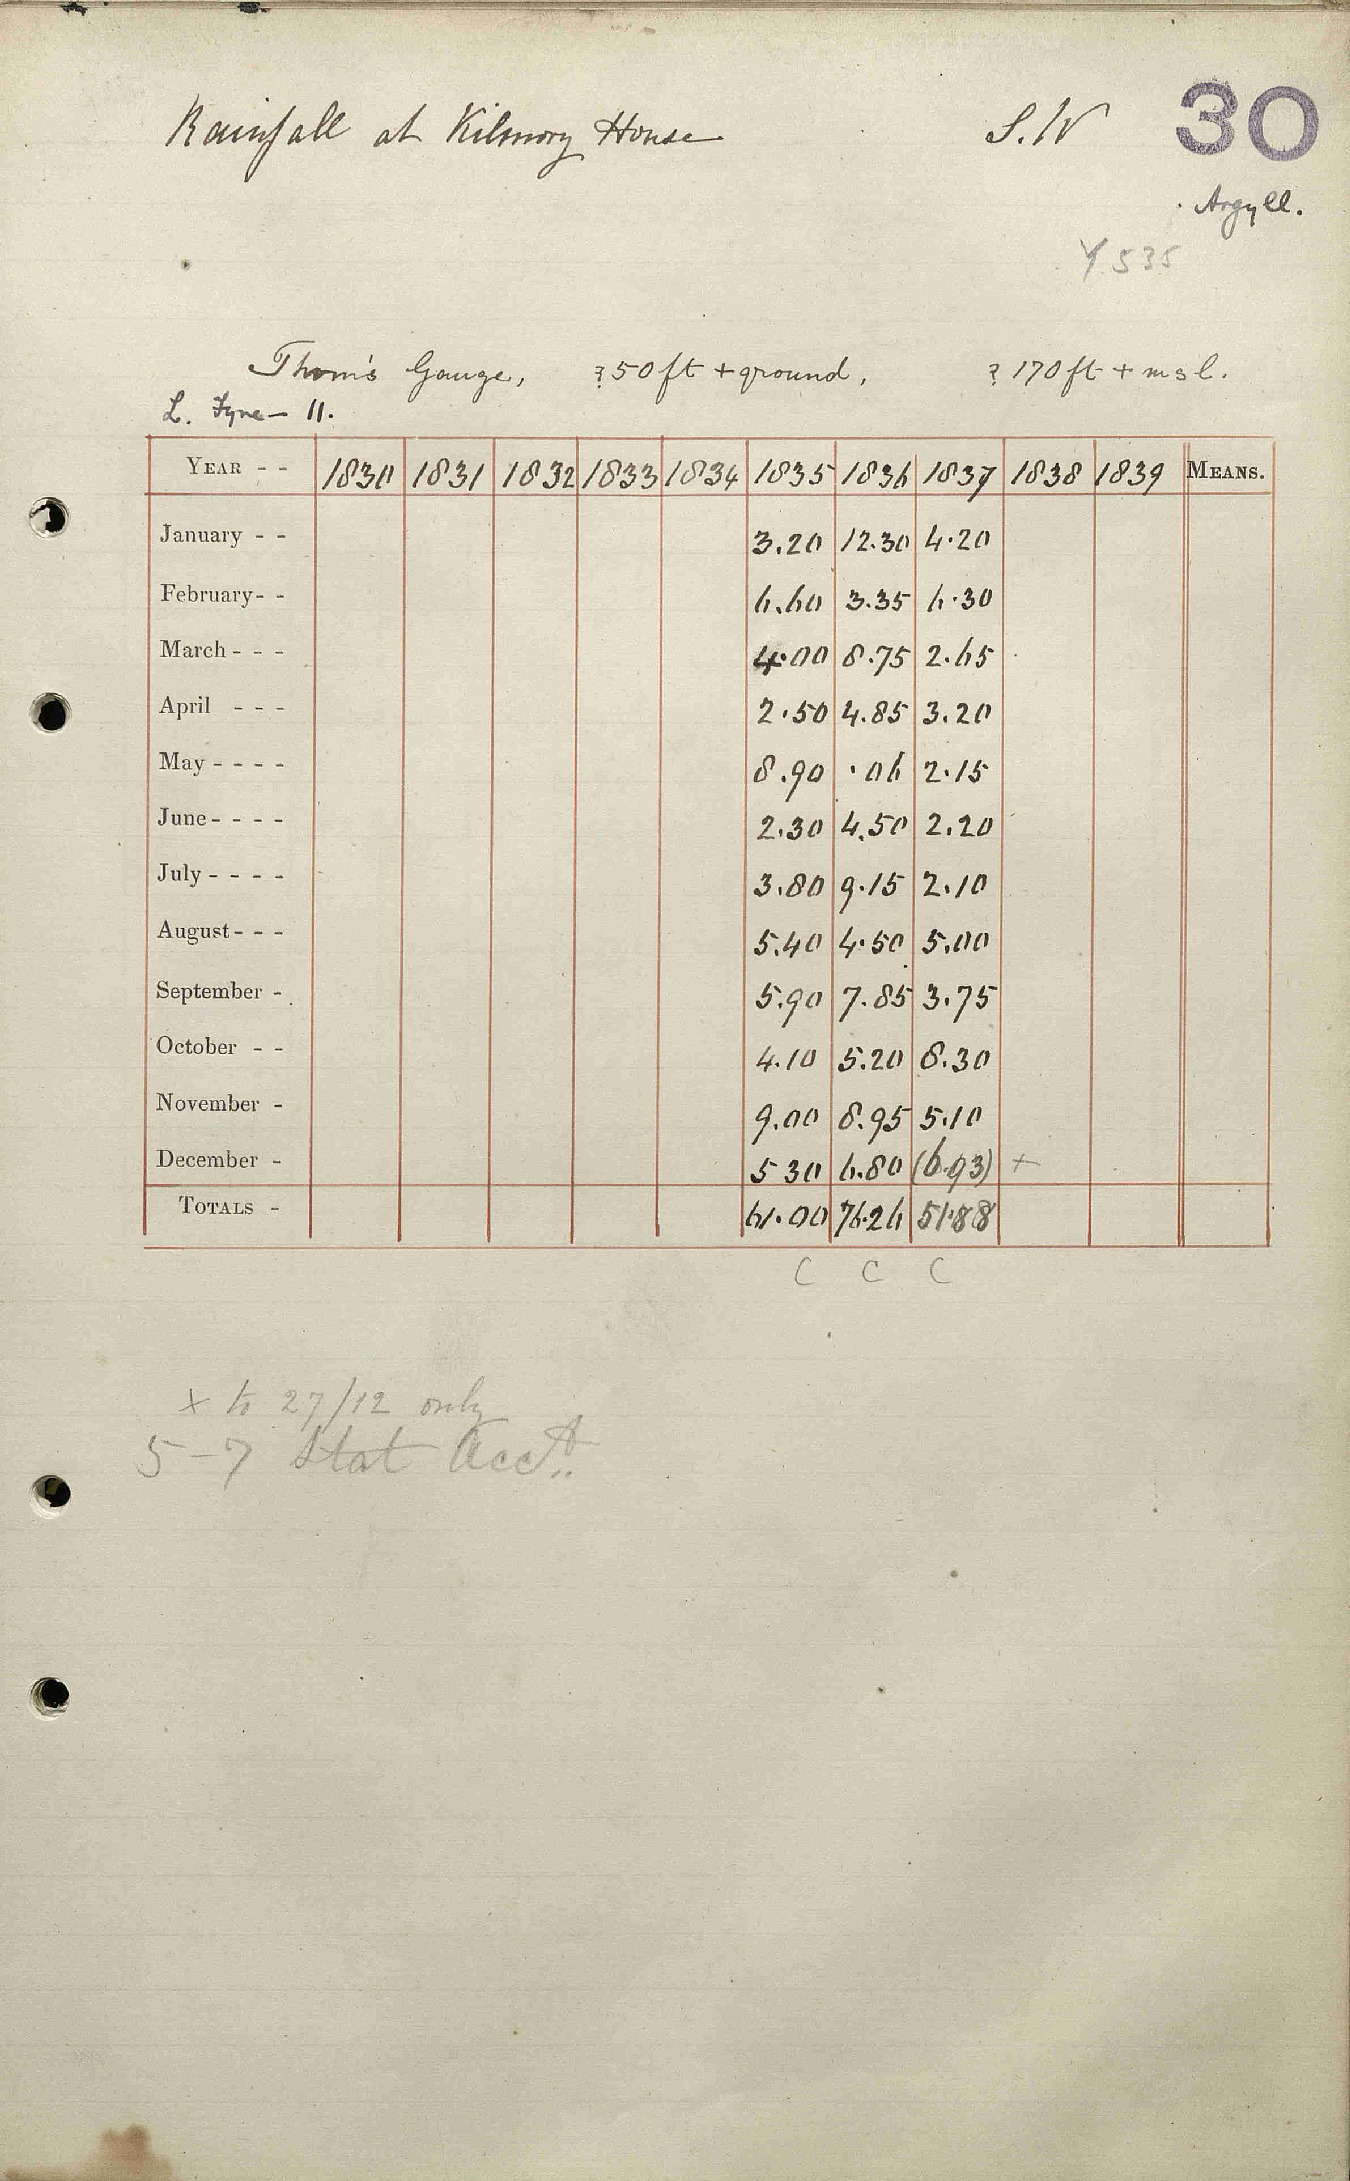 Rainfall at Kilmory House S.W 30
Argyll.
Y 535
Thom's Gauge, ? 50 ft + ground, ? 170 ft + msl.
L. Fyne — 11.
YEAR - - 1830 1831 1832 1833 1834 1835 1836 1837 1838 1839 MEANS.
January - - 3.20 12.30 4.20
February - - 6.60 3.35 6.30
March - - - 4.00 8.75 2.65
April - - - 2.50 4.85 3.20
May - - - - 8.90 .06 2.15
June - - - - 2.30 4.50 2.20
July - - - - 3.80 9.15 2.10
August - - - 5.40 4.50 5.00
September - 5.90 7.85 3.75
October - - 4.10 5.20 8.30
November - 9.00 8.95 5.10
December - 5 30 6.80 (6.93) +
TOTALS - 61.00 76.26 51.88
C C C
x to 27/12 only
5-7 Stat Acct.